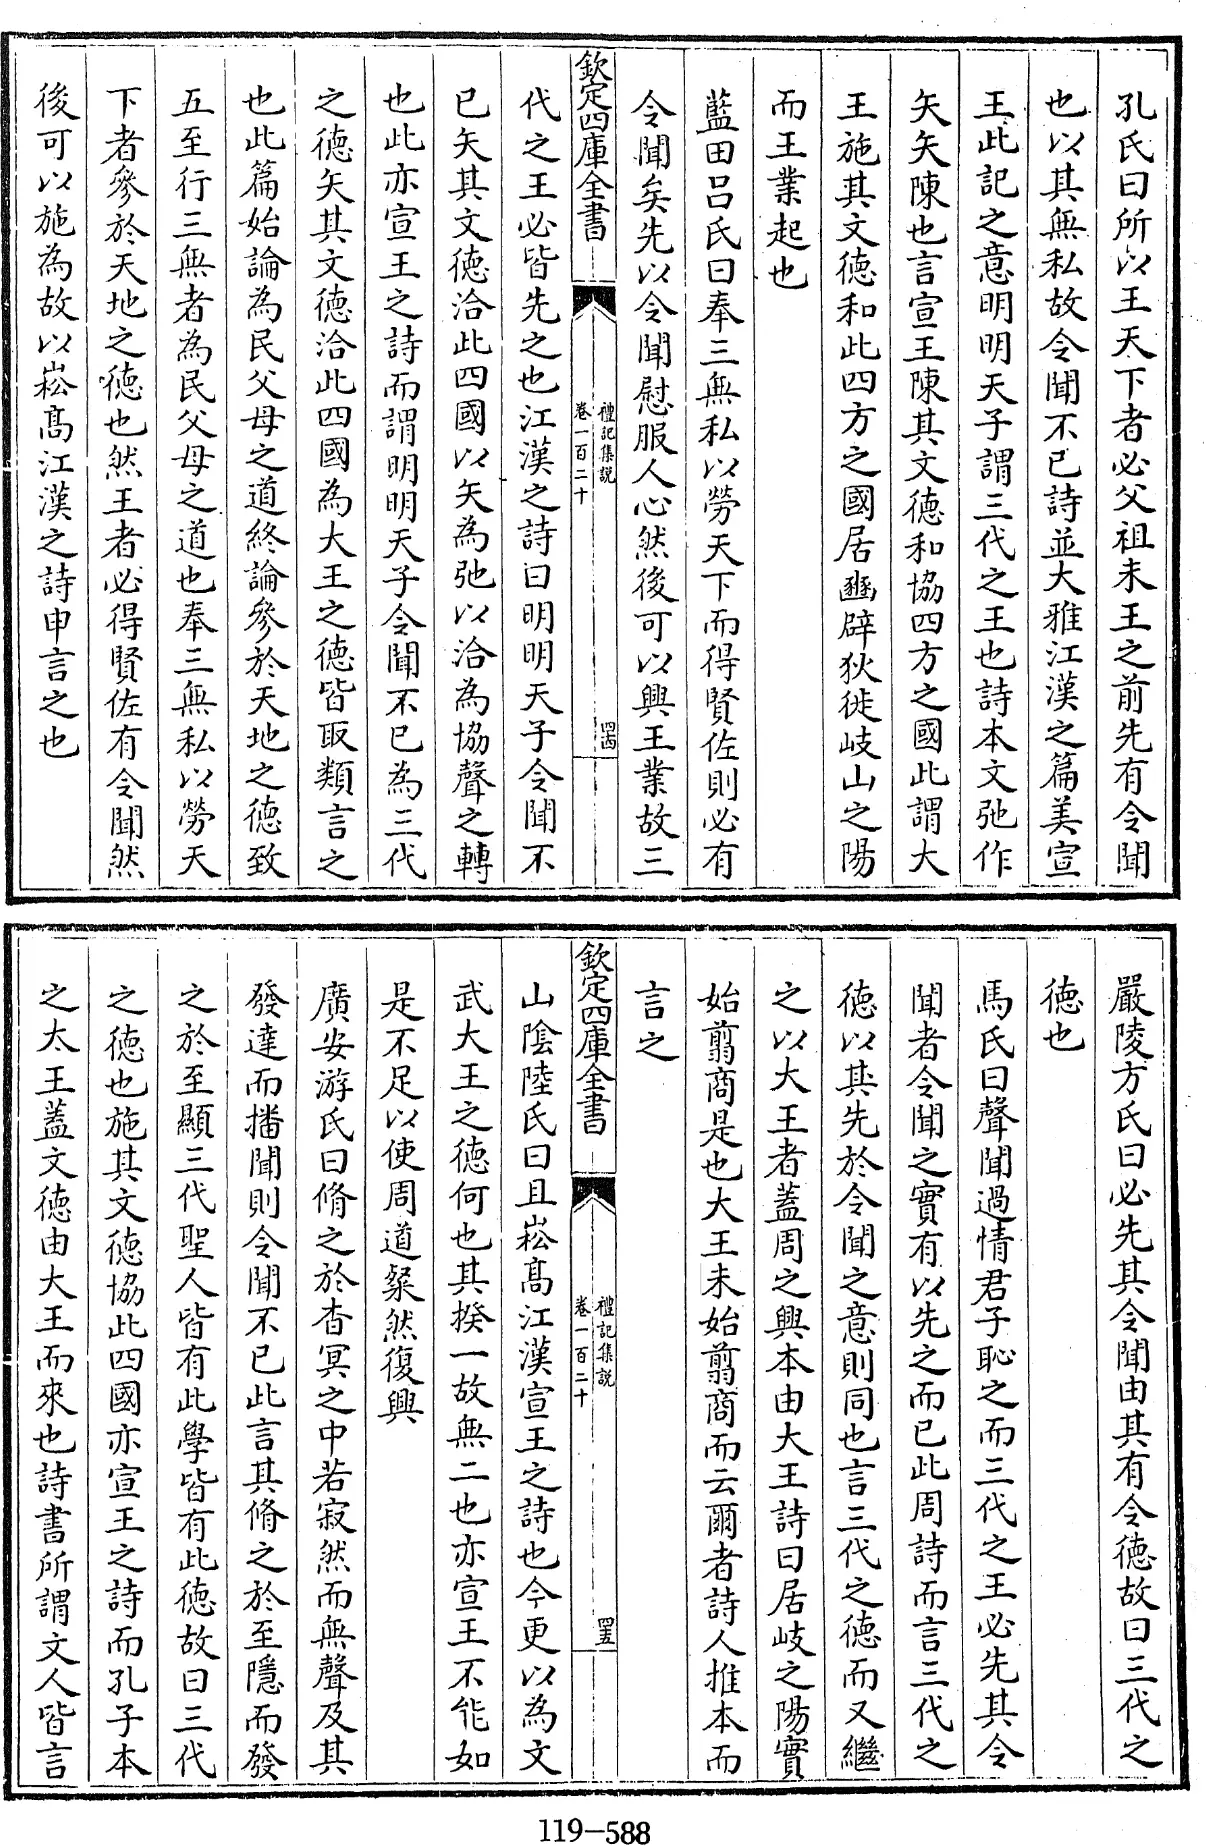 孔氏曰所以王天下者必父祖未王之前先有令聞
也以其無私故令聞不已詩並大雅江漢之篇美宣
王此記之意明明天子謂三代之王也詩本文弛作
矢矢陳也言宣王陳其文德和協四方之國此謂大
王施其文德和此四方之國居豳辟狄徙岐山之陽
而王業起也
藍田呂氏曰奉三無私以勞天下而得賢佐則必有
令聞矣先以令聞慰服人心然後可以興王業故三
欽定四庫全書
禮記集說
卷一百二十
四十四
代之王必皆先之也江漢之詩曰明明天子令聞不
已矢其文德洽此四國以矢為弛以洽為協聲之轉
也此亦宣王之詩而謂明明天子令聞不已為三代
之德矢其文德洽此四國為大王之德皆取類言之
也此篇始論為民父母之道終論參於天地之德致
五至行三無者為民父母之道也奉三無私以勞天
下者參於天地之德也然王者必得賢佐有令聞然
後可以施為故以崧高江漢之詩申言之也
嚴陵方氏曰必先其令聞由其有令德故曰三代之
德也
馬氏曰聲聞過情君子恥之而三代之王必先其令
聞者令聞之實有以先之而已此周詩而言三代之
德以其先於令聞之意則同也言三代之德而又繼
之以大王者蓋周之興本由大王詩曰居岐之陽實
始翦商是也大王未始翦商而云爾者詩人推本而
言之
欽定四庫全書
禮記集說
卷一百二十
四十五
山陰陸氏曰且崧高江漢宣王之詩也今更以為文
武大王之德何也其揆一故無二也亦宣王不能如
是不足以使周道粲然復興
廣安游氏曰脩之於杳冥之中若寂然而無聲及其
發達而播聞則令聞不已此言其脩之於至隱而發
之於至顯三代聖人皆有此學皆有此德故曰三代
之德也施其文德協此四國亦宣王之詩而孔子本
之太王蓋文德由大王而來也詩書所謂文人皆言
119-588